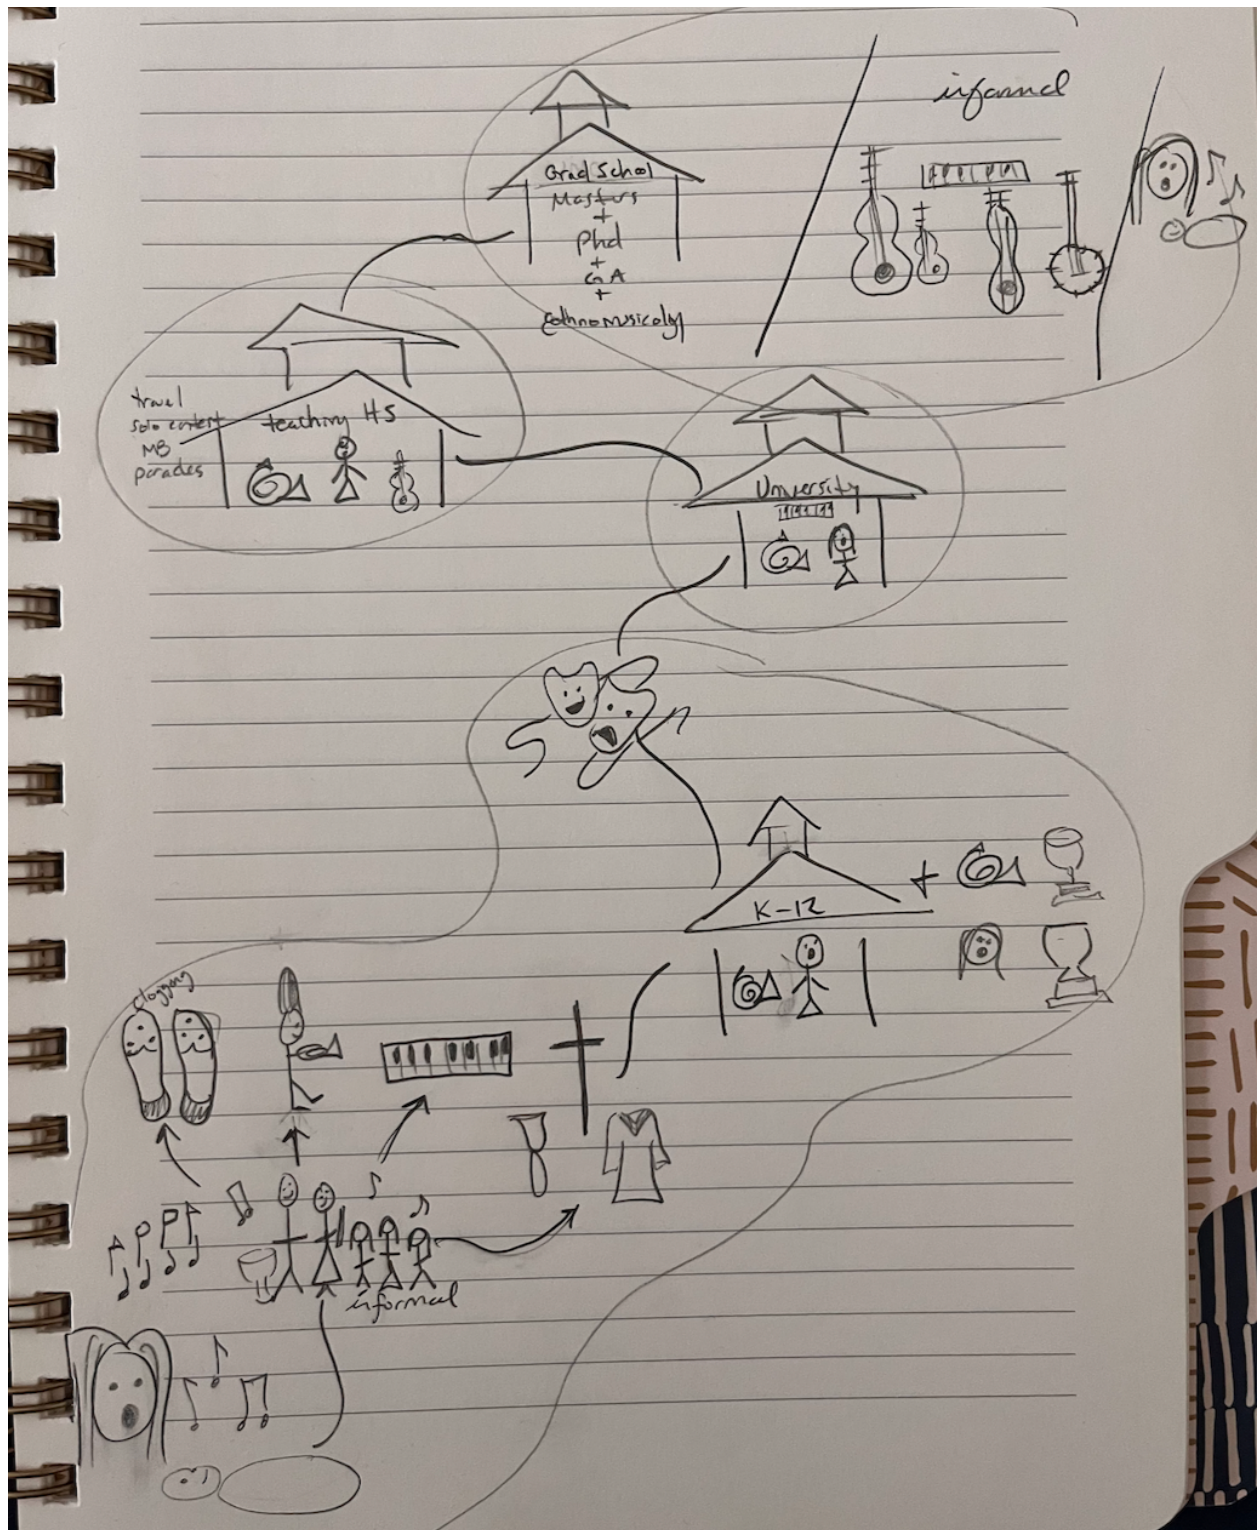 informal
Grad School
Masters
+
Phd
+
GA
+
Eothnomusicology
travel
solo contest
MB
parades
teaching HS
University
K-12
+
clogging
informal